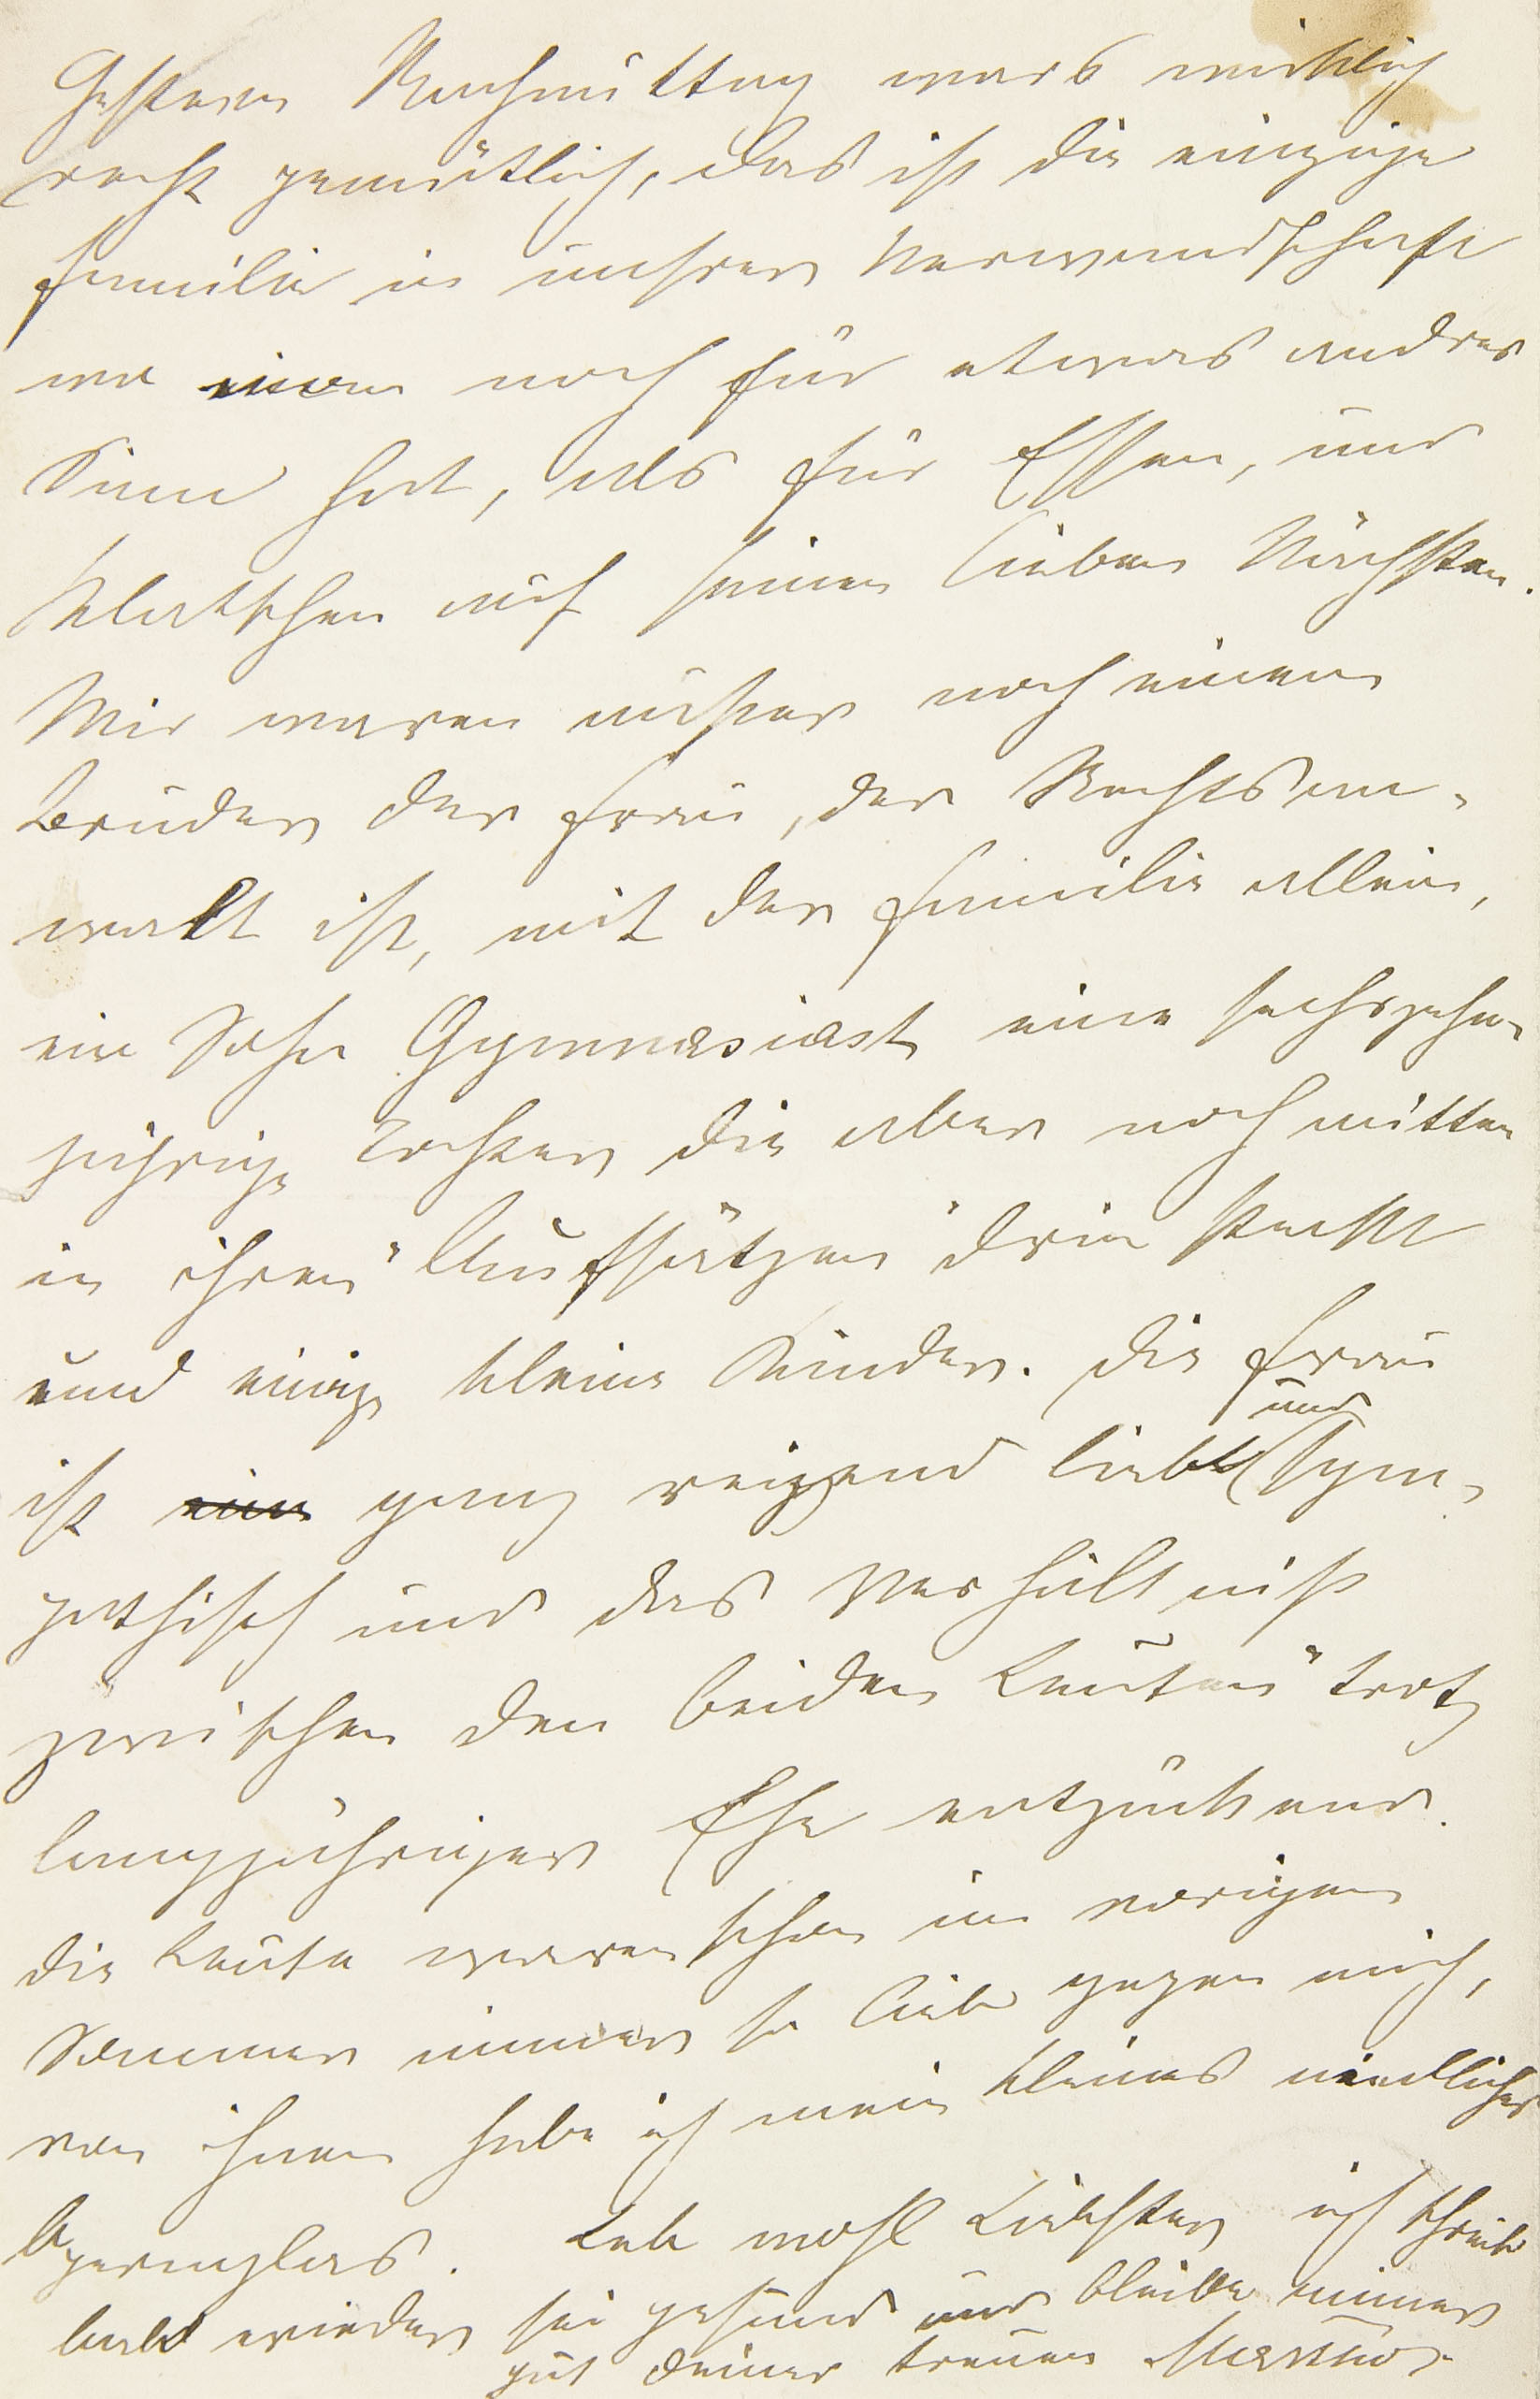 Gestern Nachmittag wars wirklich
recht gemütlich, das ist die einzige
Familie in unsrer Verwandschaft
wo man noch für etwas andres
Sinn hat, als für Essen, und
Klatschen auf seinen lieben Nächsten.
Wir waren außer noch einem
Bruder der Frau, der Rechtsan-
walt ist, mit der Familie allein,
ein Sohn Gymnasiast eine sechszehn-
jährige Tochter die aber noch mitten
in ihren "Aufsätzen" drin steckt
und einige kleine Kinder. Die Frau
ist ganz reizend lieb und sym-
pathisch und das Verhältniß
zwischen den beiden Leuten trotz
langjähriger Ehe entzückend.
Die Leute waren schon im vorigen
Sommer immer so lieb gegen mich,
von ihnen habe ich mein kleines niedliches
Opernglas. Leb wohl Liebster ich schreib
bald wieder sei gesund und bleibe immer
gut deiner treuen